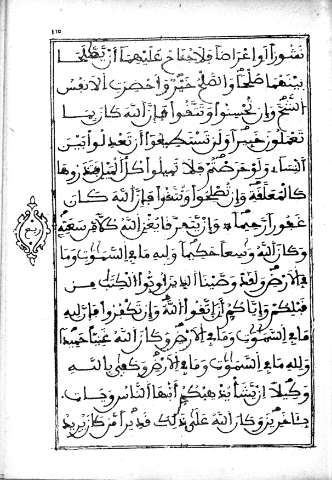 نشوزا أو إعراضا فلا جناح عليهما أن يصلحا
بينهما صلحا والصلح خير وأحضرت الأنفس
الشح وإن تحسنوا وتتقوا فإن الله كان بما
تعملون خبيرا ولن تستطيعوا أن تعدلوا بين
النساء ولو حرصتم فلا تميلوا كل الميل فتذروها
كالمعلقة وإن تصلحوا وتتقوا فإن الله كان
غفورا رحيما وإن يتفرقا يغن الله كلا من سعته
وكان الله وسعا حكيما ولله ما في السموت وما
في الأرض ولقد وصينا الذين أوتوا الكتب من
قبلكم وإياكم أن اتقوا الله وإن تكفروا فإن لله
ما في السموت وما في الأرض وكان الله غنيا حميدا
ولله ما في السموت وما في الأرض وكفى بالله
وكيلا إن يشأ يذهبكم أيها الناس ويأت
بئاخرين وكان الله على ذلك قديرا من كان يريد
ربع